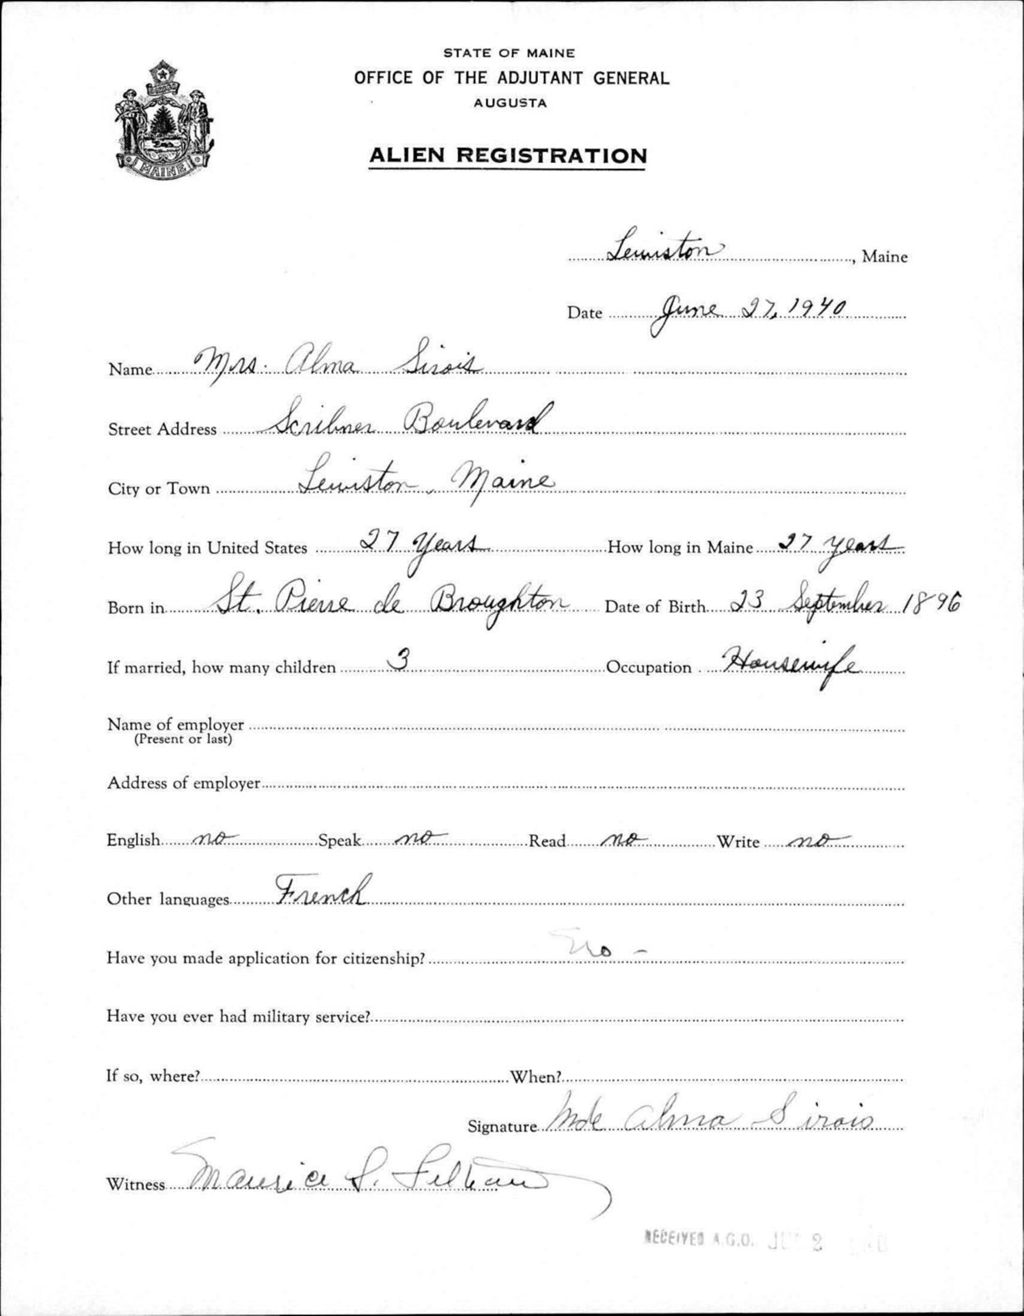 STATE OF MAINE
OFFICE OF THE ADJUTANT GENERAL
AUGUSTA
ALIEN REGISTRATION
MAINE
Lewiston, Maine
Date June 27, 1940
Name Mrs. Alma Sirois
Street Address Scribner Boulevard
City or Town Lewiston, Maine
How long in United States 27 Years How long in Maine 27 years
Born in St. Pierre de Broughton Date of Birth 23 September 1896
If married, how many children 3 Occupation Housewife
Name of employer
(Present or last)
Address of employer
English no Speak no Read no Write no
Other languages French
Have you made application for citizenship? No -
Have you ever had military service?
If so, where? When?
Signature Mde Alma Sirois
Witness Maurice S.
RECEIVED A.G.O. 2